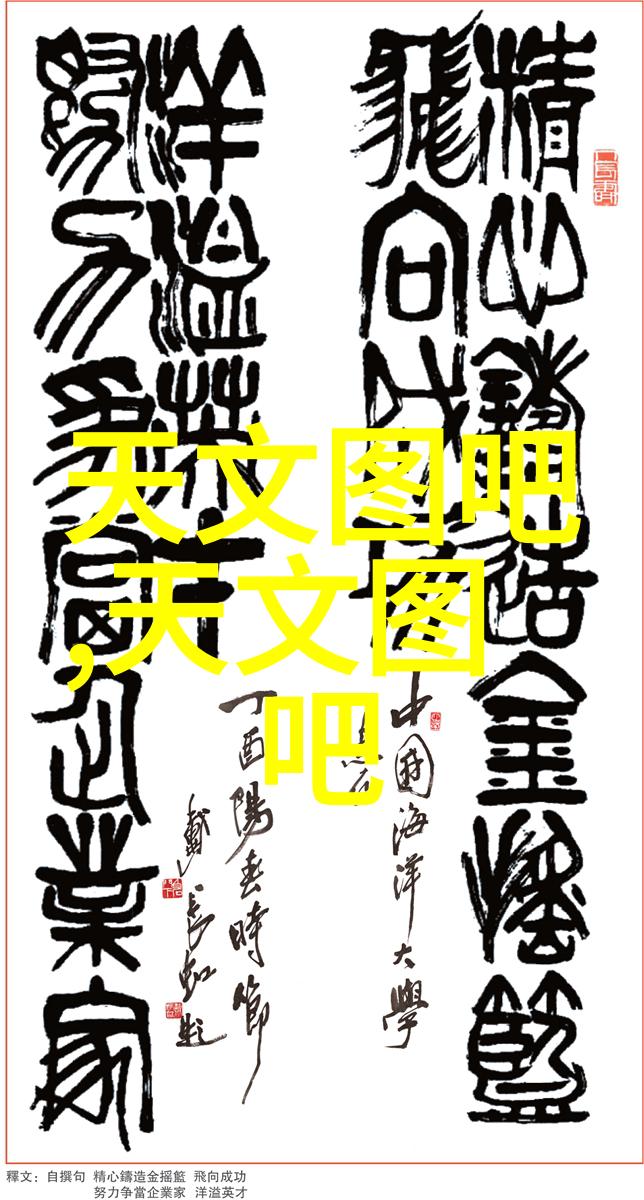 精心鑄造金搖籃
飛向成功
中國海洋大學
洋溢英才
丁酉陽春時節
戴長虹題
努力爭當企業家
天文图吧
,天文图
吧
釋文：自撰句 精心鑄造金摇籃 飛向成功
努力争當企業家 洋溢英才